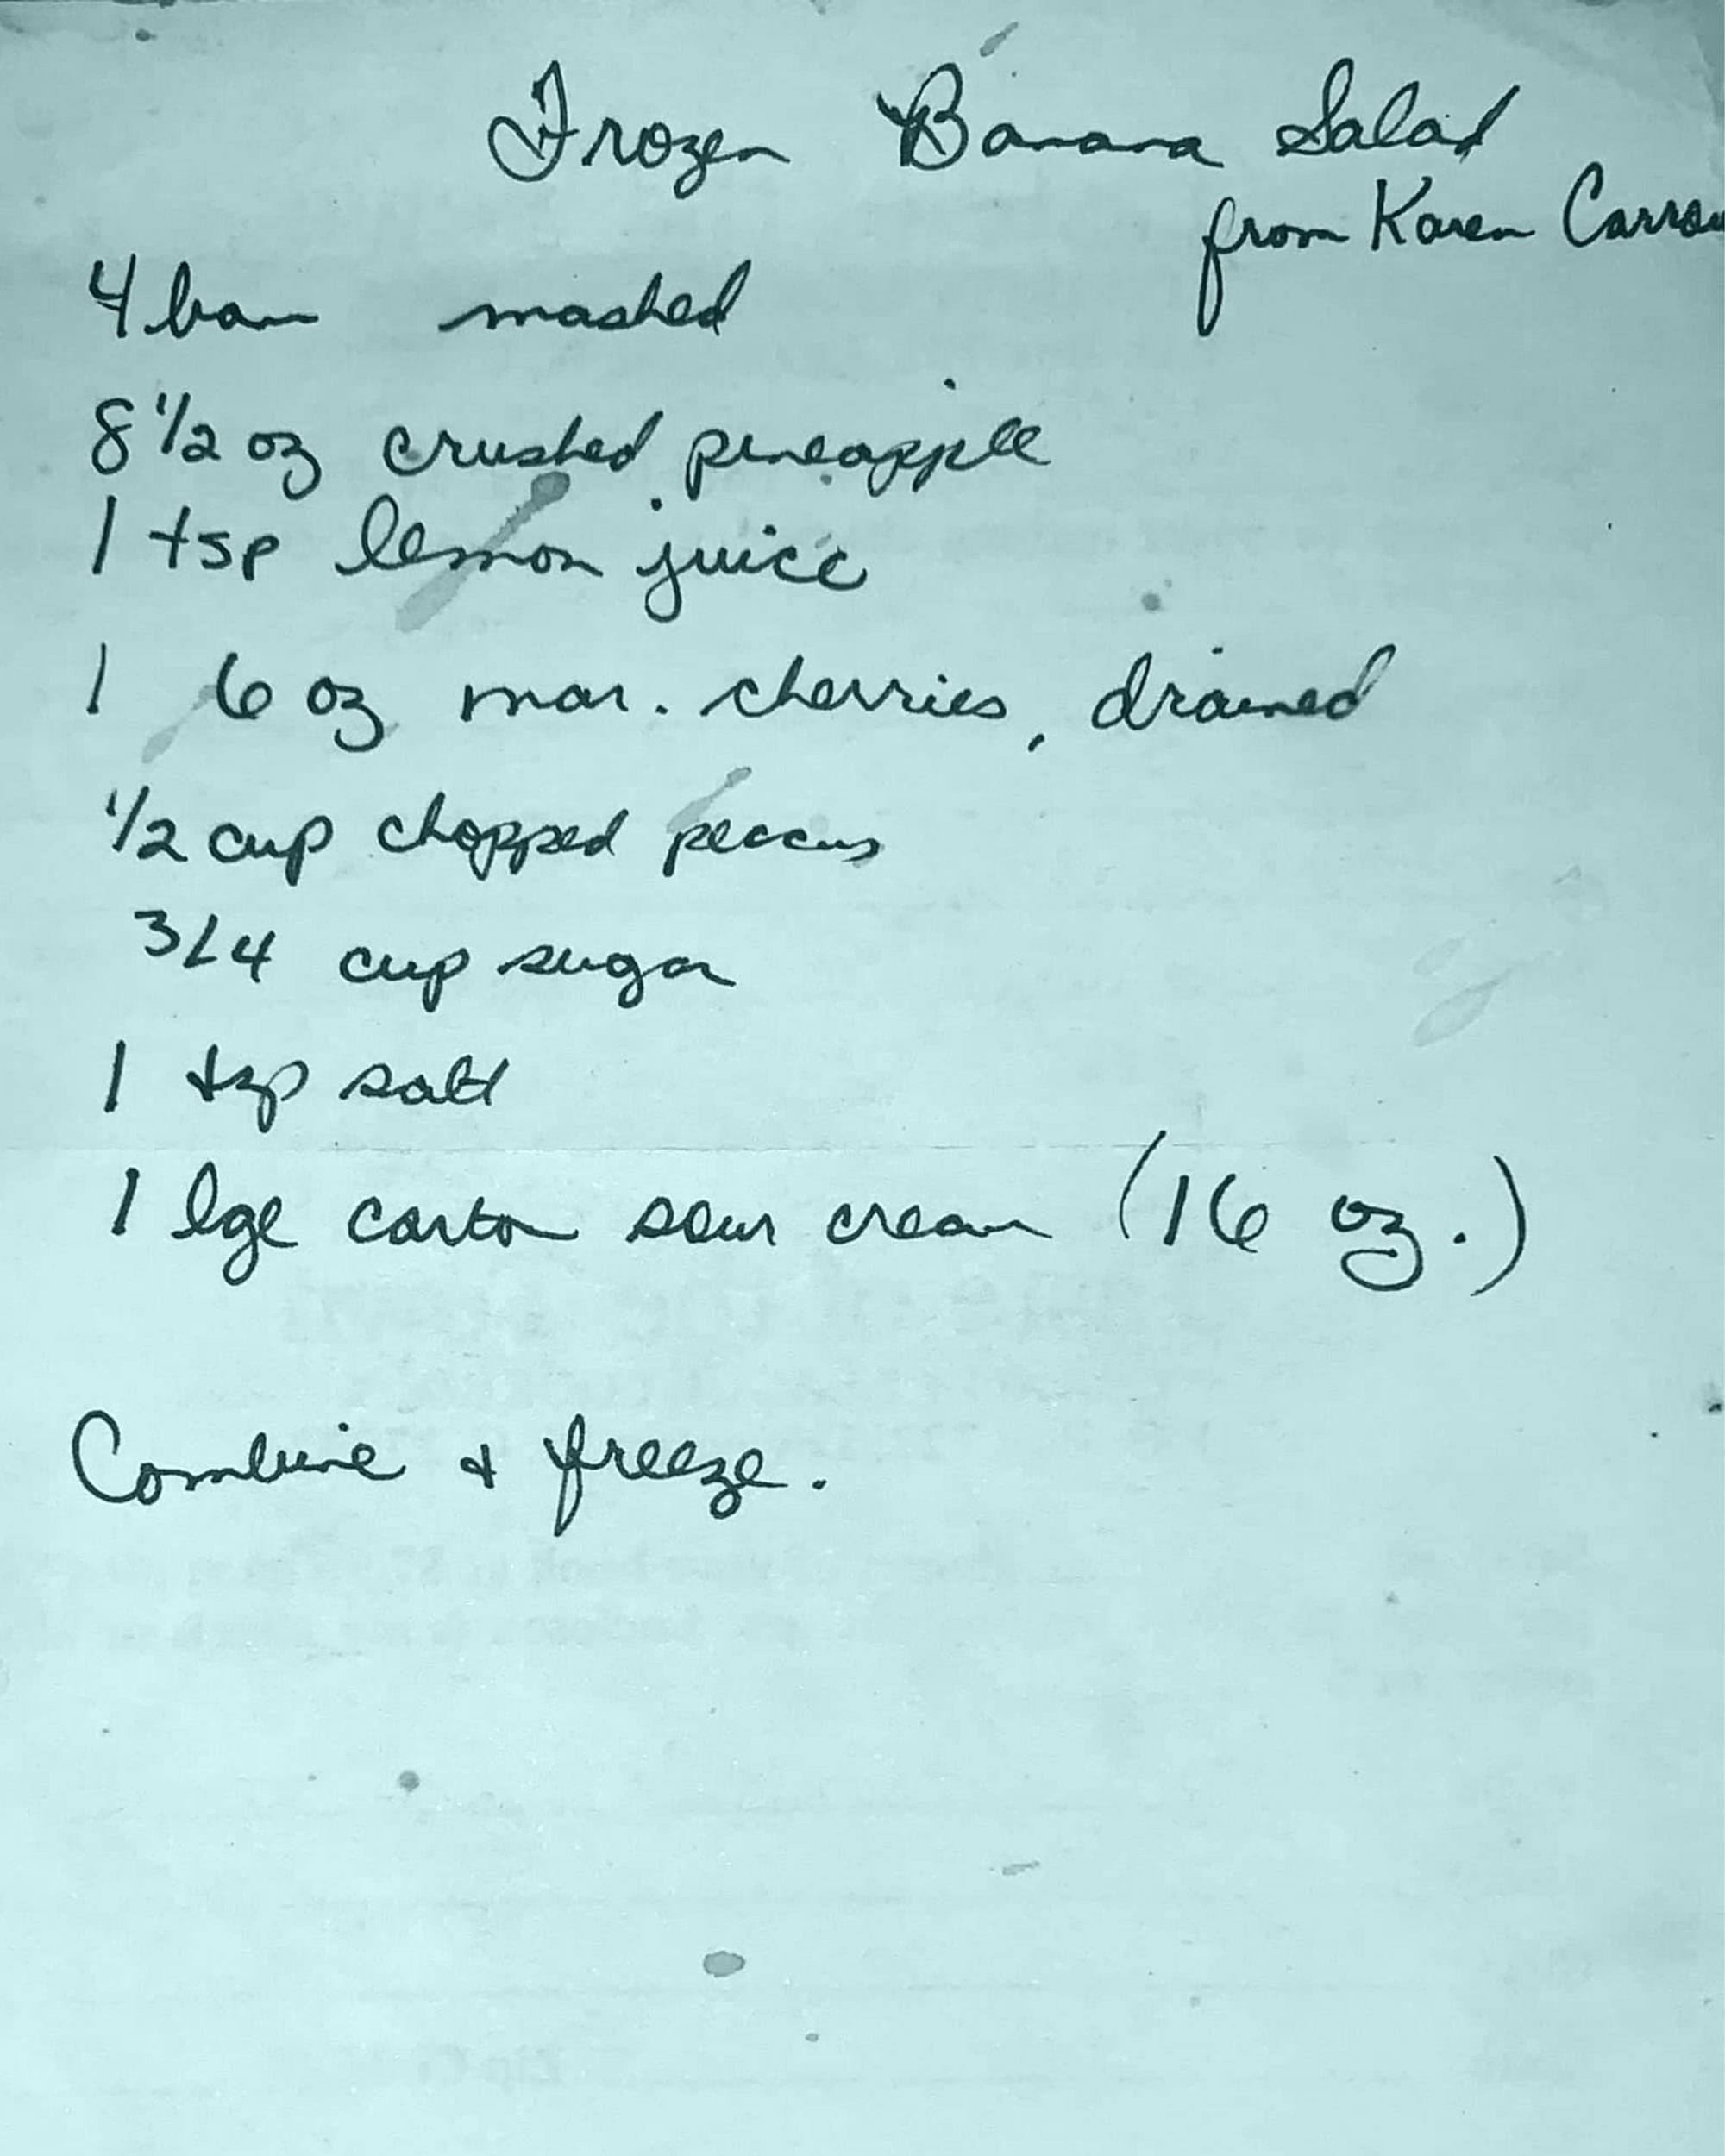 Frozen Banana Salad
from Karen
4 ban mashed
8 1/2 oz crushed pineapple
1 tsp lemon juice
1 6 oz mar. cherries, drained
1/2 cup chopped pecans
3/4 cup sugar
1 tsp salt
1 lge carton sour cream (16 oz.)
Combine & freeze.